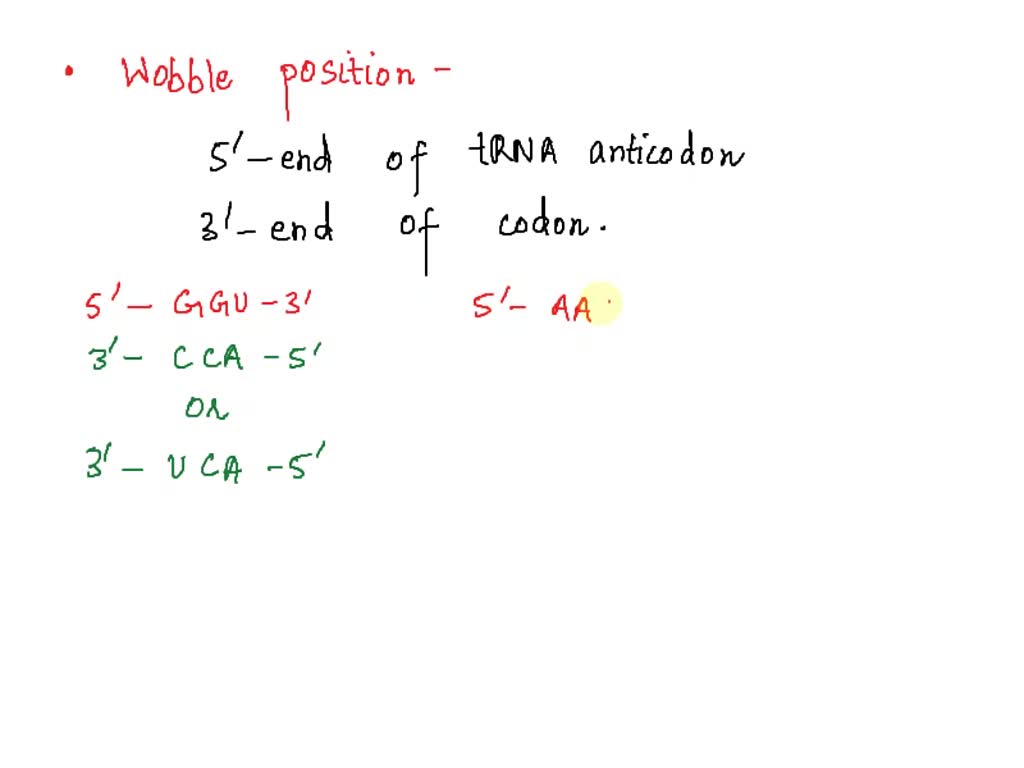 • Wobble position -
5'-end of tRNA anticodon
3'-end of codon.
5'- GGU -3' 5'- AA
3'- CCA -5'
or
3'- UCA -5'